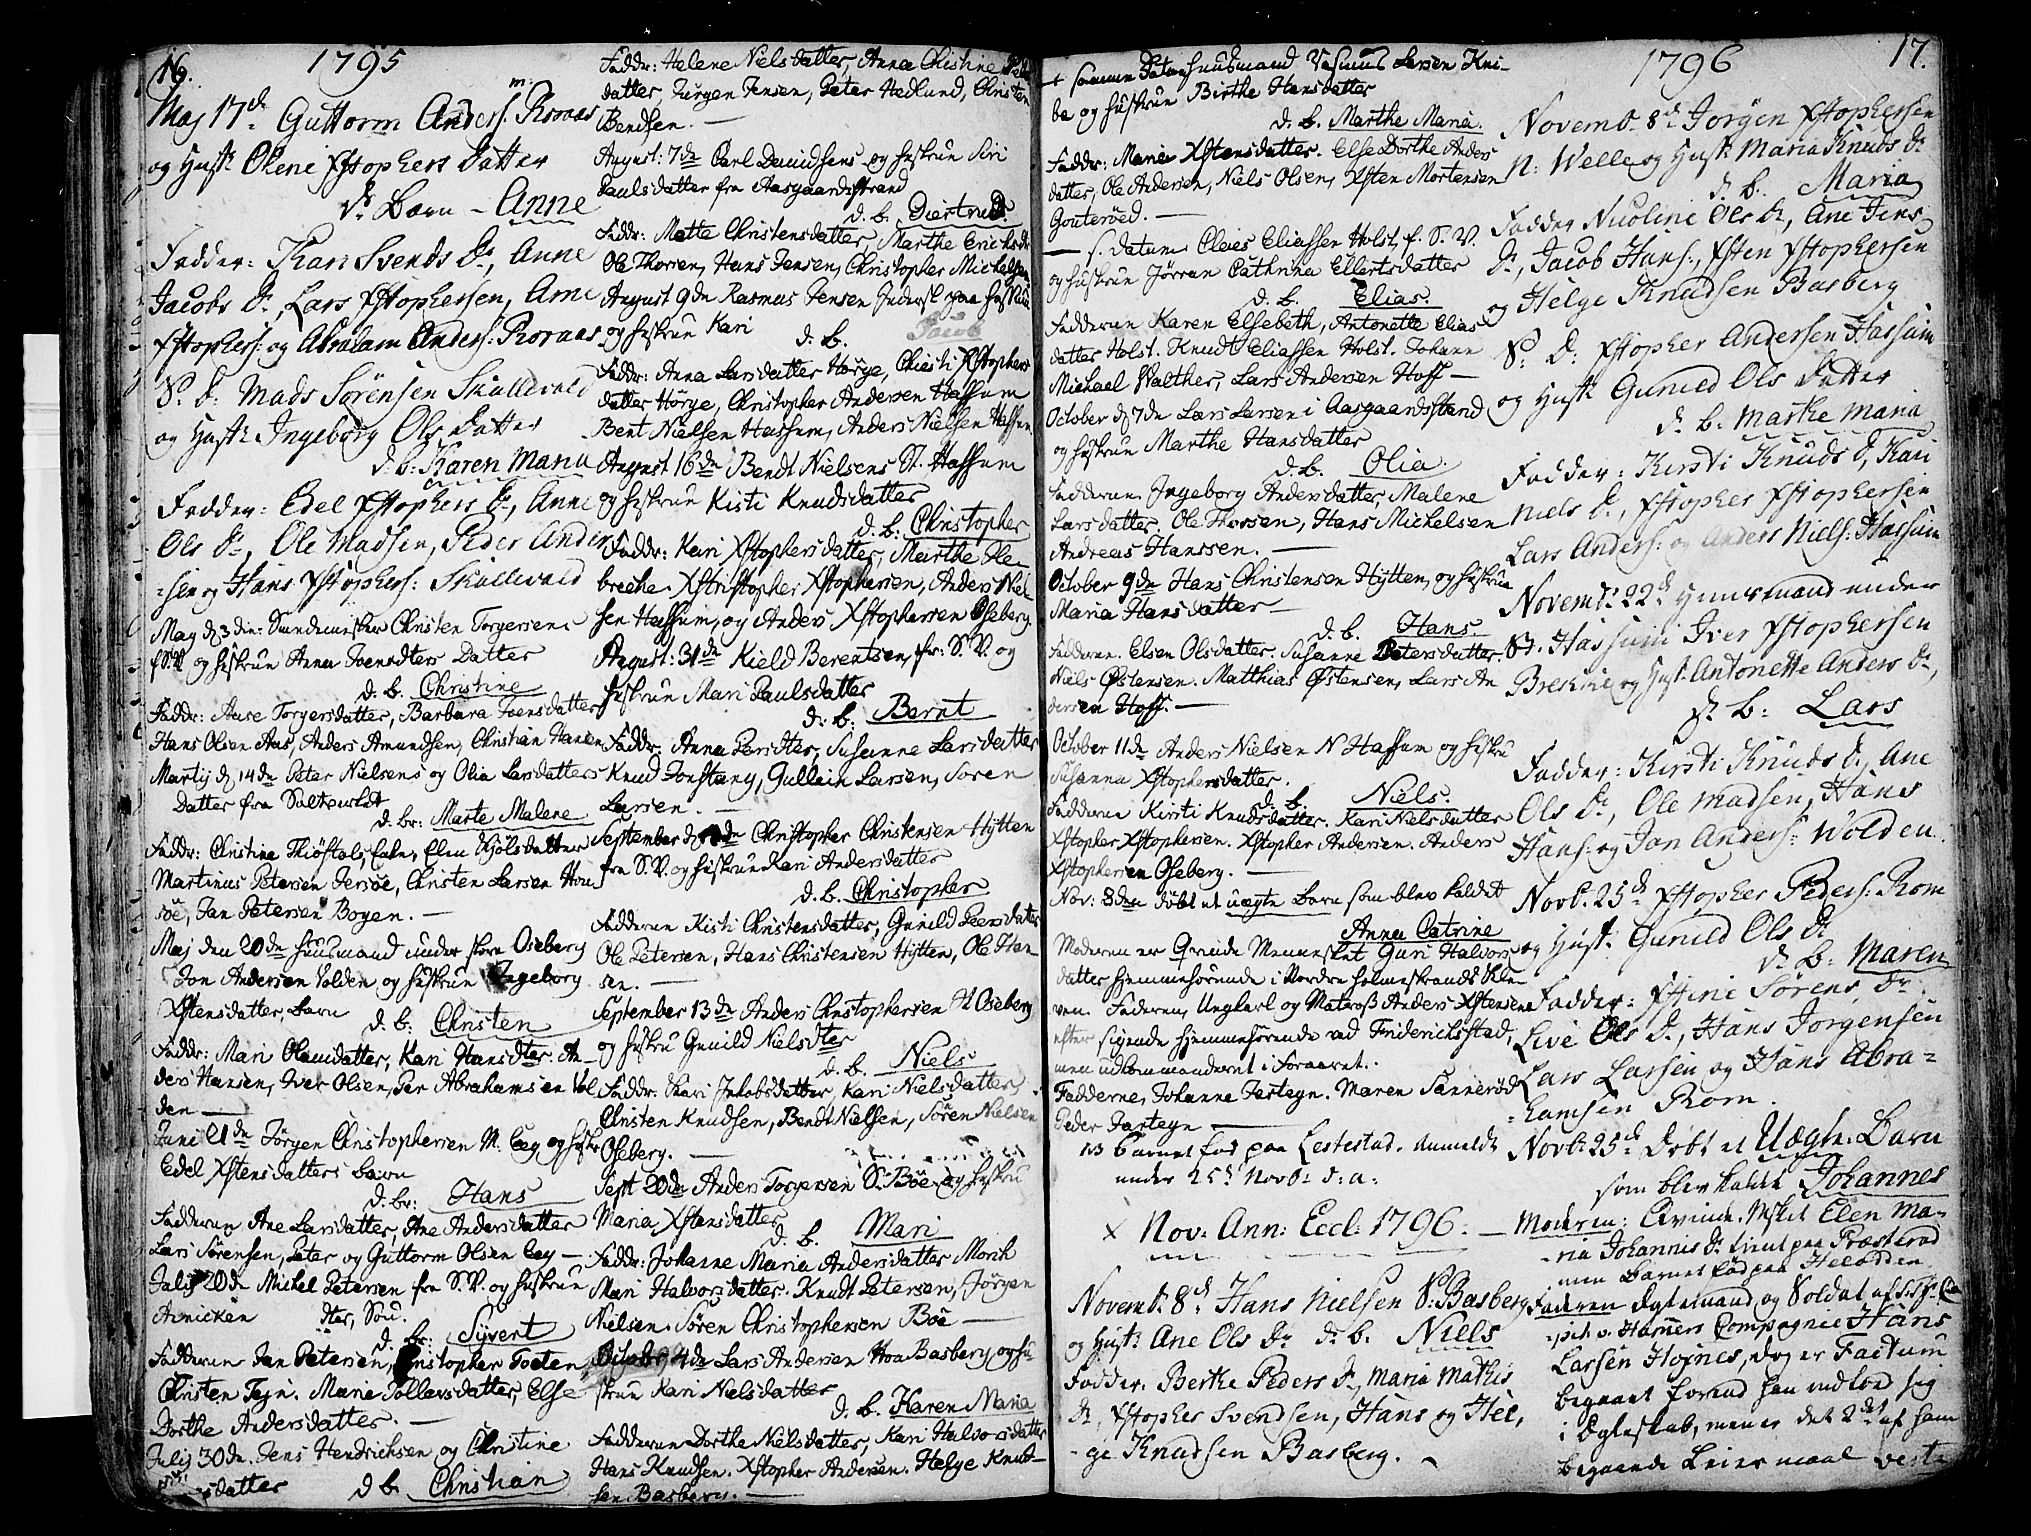 16.
1795
Maj 17de Guttorm Anders. m: Roraas
og Hust: Olene Xstophers Datter
D: Barn - Anne
Fadder: Kari Svends Dr, Anne
Jacobs Dr, Lars Xstophersen, Arne
Xstophers: og Abraham Anders: Roraas
S: D: Mads Sörensen Skallevald
og Hust: Ingeborg Ols Datter
d: b: Karen Maria
Fadder: Edel Xstophers Dr, Anne
Ols Dr, Ole Madsen, Peder Ander
=sen og Hans Xstophers: Skallevald
May d 3die: Christen Torgersens
f S:V og hustrue Anna Datter
d. b. Christine
Faddr: Aase Torgersdatter, Barbara Toensdatter
Hans Olsen Aas, Anders Amundsen, Christian Hansen
Martij d 14de Peter Nielsens og Olia Larsdatters
Datter fra
d. br: Marte Malene
Faddr: Christine Elen Kjölsdatter
Martinus Petersen Jersöe, Christen Larsen Hou
söe, Jan Petersen Bogen. —
Maj den 20de Huusmand under store Oseberg
Jon Andersen Volden og hustrue Ingeborg
Xstensdatter, Barn
d: b: Christen
Faddr: Mari Olausdatter, Kari Hansdter. An
ders Hansen, Iver Olsen, Per Abrahamsen Vol
den —
Juni 21de Jörgen Christophersen M. Eeg og hustr
Edel Xstensdatters barn
d: br: Hans
Fadderne Ane Larsdatter, Ane Andersdatter
Lars Sörensen, Peter og Guttorm Olsen Eeg —
Julij 20de Michel Petersen fra S.V. og hustrue
Annicken dter, Sön.
d. br: Syvert
Fadderne Jan Petersen, Christopher Toeten
Christen Tejn. Maria Tollevsdatter, Else
Dorthe Andersdatter. —
Julij 30de. Jens Hendrichsen og Christine
datter d b. Christian
Faddr: Helene Nielsdatter, Anna Christine Peders
datter, Jürgen Jensen, Peter Hedlund, Christen
Bendsen. —
August: 7de Carl Davidsens og hustrue Siri
Paulsdatter fra Aasgaardsstrand
d. b. Diertrud.
Faddr: Mette Christensdatter, Marthe Erichsdr
Ole Thorsen, Hans Jensen, Christopher Michelsen
August 9de Rasmus Jensen
og hustrue Kari d. b. Jacob
Faddr: Anna Larsdatter Horge, Christi Xstophers
datter Horge, Christopher Andersen Hassum
Bent Nielsen Hassum, Anders Nielsen Hassum
August 16de Bendt Nielsens St. Hassum
og hustrue Kisti Knudsdatter
d. b: Christopher
Faddr: Kari Xstophersdatter, Marthe
brecke Xstophersen, Anders Niel
sen Hassum, og Anders Xstophersen Oseberg.
August: 31de Kield Berentsen, fr: S.V. og
hustrue Mari Paulsdatter
d: b: Bernt
Faddr: Anna Larsdter, Susanne Larsdatter
Knud Gullich Larsen, Soren
Larsen. —
September d de Christopher Christensen Hytten
fra S.V. og hustrue Kari Andersdatter
d. b. Christopher
Fadderne Kisti Christensdatter, Gunild Peersdatter
Ole Petersen, Hans Christensen Hytten, Ole Han
sen. —
September 13de Anders Christophersen N Oseberg
og hustru Gunild Nielsdter
d. b. Niels
Faddr: Kari Jacobsdatter, Kari Nielsdatter
Christen Knudsen, Bendt Nielsen, Sören Nielsen
Oseberg. —
Sept 20de Anders Torgersen S: Böe og hustru
Maria Xstensdatter
d. b. Mari
Faddr: Johanne Maria Andersdatter
Mari Halvorsdatter. Knudt Petersen, Jörgen
Nielsen. Sören Christophersen Böe —
October 4de Lars Andersen Hou Basberg, og hu
strue Kari Nielsdatter
d. b. Karen Maria
Fadderne Dorthe Nielsdatter, Kari Halvorsdatter
Hans Knudsen. Xstopher Andersen. Helge Knud-
sen Basberg. —
samme Datum Huusmand Rasmus Larsen Kni-
be og hustrue Birthe Hansdatter
d. b. Marthe Maria.
Faddr: Maria Xstensdatter. Else Dorthe Anders
datter, Ole Andersen, Niels Olsen, Xsten Mortensen
Gouteröed. —
— s. Datum Claus Eliassen Holst, f. S.V.
og hustrue Jörran Cathrina Ellertsdatter
d. b. Elias.
Fadderne Karen Elsebeth, Antonette Elias
datter Holst. Knudt Eliassen Holst. Johann
Michael Walther, Lars Andersen Hoff —
October d 7de Lars Larsen i Aasgaardstrand
og hustrue Marthe Hansdatter
d. b. Olia.
Fadderne Ingeborg Andersdatter, Malene
Larsdatter. Ole Thorsen, Hans Michelsen
Andreas Hanssen. —
October 9de Hans Christensen Hytten, og hustrue
Maria Hansdatter —
d. b. Hans.
Fadderne. Elsen Olsdatter. Susanne Petersdatter.
Niels Östensen. Matthias Östensen, Lars An
dersen Hoff. —
October 11de Anders Nielsen N Hassum og hustru
Susanna Xstophersdatter.
d. b. Niels.
Fadderne Kirsti Knudsdatter. Kari Nielsdatter
Xstopher Xstophersen. Xstopher Andersen. Anders
Xstophersen Oseberg. —
Nov: 8den döbt et uægte Barn som blev kaldet
Anna Catrine
Moderen er Qvinde Mennesket Guri Halvors
datter hjemmehörende i Nordre Holmestrands
ven. Faderen, Ungkarl og Matroß Anders Xstensen
efter sigende hjemmehörende ved Friderichsstad,
men udcommanderet i Foraaret.
Fadderne, Johanne Jartegn. Maren Sanneröd
Peder Jartegn —
NB Barnet föd paa Lestestad. Anmeldt
under 25de Novbr d: a:
x Nov: Ann: Eccl: 1796. —
Novemb. 8de Hans Nielsen S: Basberg
og Hust: Ane Ols Dr d. b. Niels
Fadder. Berthe Peders Dr, Maria Mathis
Dr, Xstopher Svendsen, Hans og Hel,
=ge Knudsen Basberg.
1796
17.
Novemb. 8de Jörgen Xstophersen
N: Welle og Hust: Maria Knuds Dr
d. b. Maria
Fadder Nicoline Ols Dr, Ane Jens
Dr, Jacob Hans:, Xsten Xstophersen
og Helge Knudsen Basberg
S: D: Xstopher Andersen Hassum
og Hust: Gunild Ols Datter
d. b. Marthe Maria
Fadder: Kirsti Knuds D, Kari
Niels Dr, Xstopher Xstophersen
Lars Anders: og Anders Niels: Hassum
Novemb: 22de Huusmand under
St. Hassum Iver Xstophersen
Breskue og Hust: Antonette Anders Dr,
D: b: Lars
Fadder: Kirsti Knuds Dr, Ane
Ols Dr, Ole Madsen, Hans
Hans: og Jon Anders: Wolden.
Novb: 25de Xstopher Peders: Rom
og Hust: Gunild Ols Dr
d. b: Maren
Fadder: Xstine Sörens Dr.
Live Ols Dr, Hans Jorgensen
Lars Larsen og Hans Abra=
=hamsen Rom.
Novb: 25de Döbt et Uægte Barn
som blev kaldet Johannes
Moderen: Qvinde Nsket Elen Ma-
ria Johannis Dr tient paa Præsteröd
men Barnet föd paa
Faderen Ægtemand og Soldat af
Compagnie Hans
Larsen Högnes, dog er Factum
begaaet forend han indlod sig
i Ægteskab, men er det 2det af ham
begaaede Leiermaal